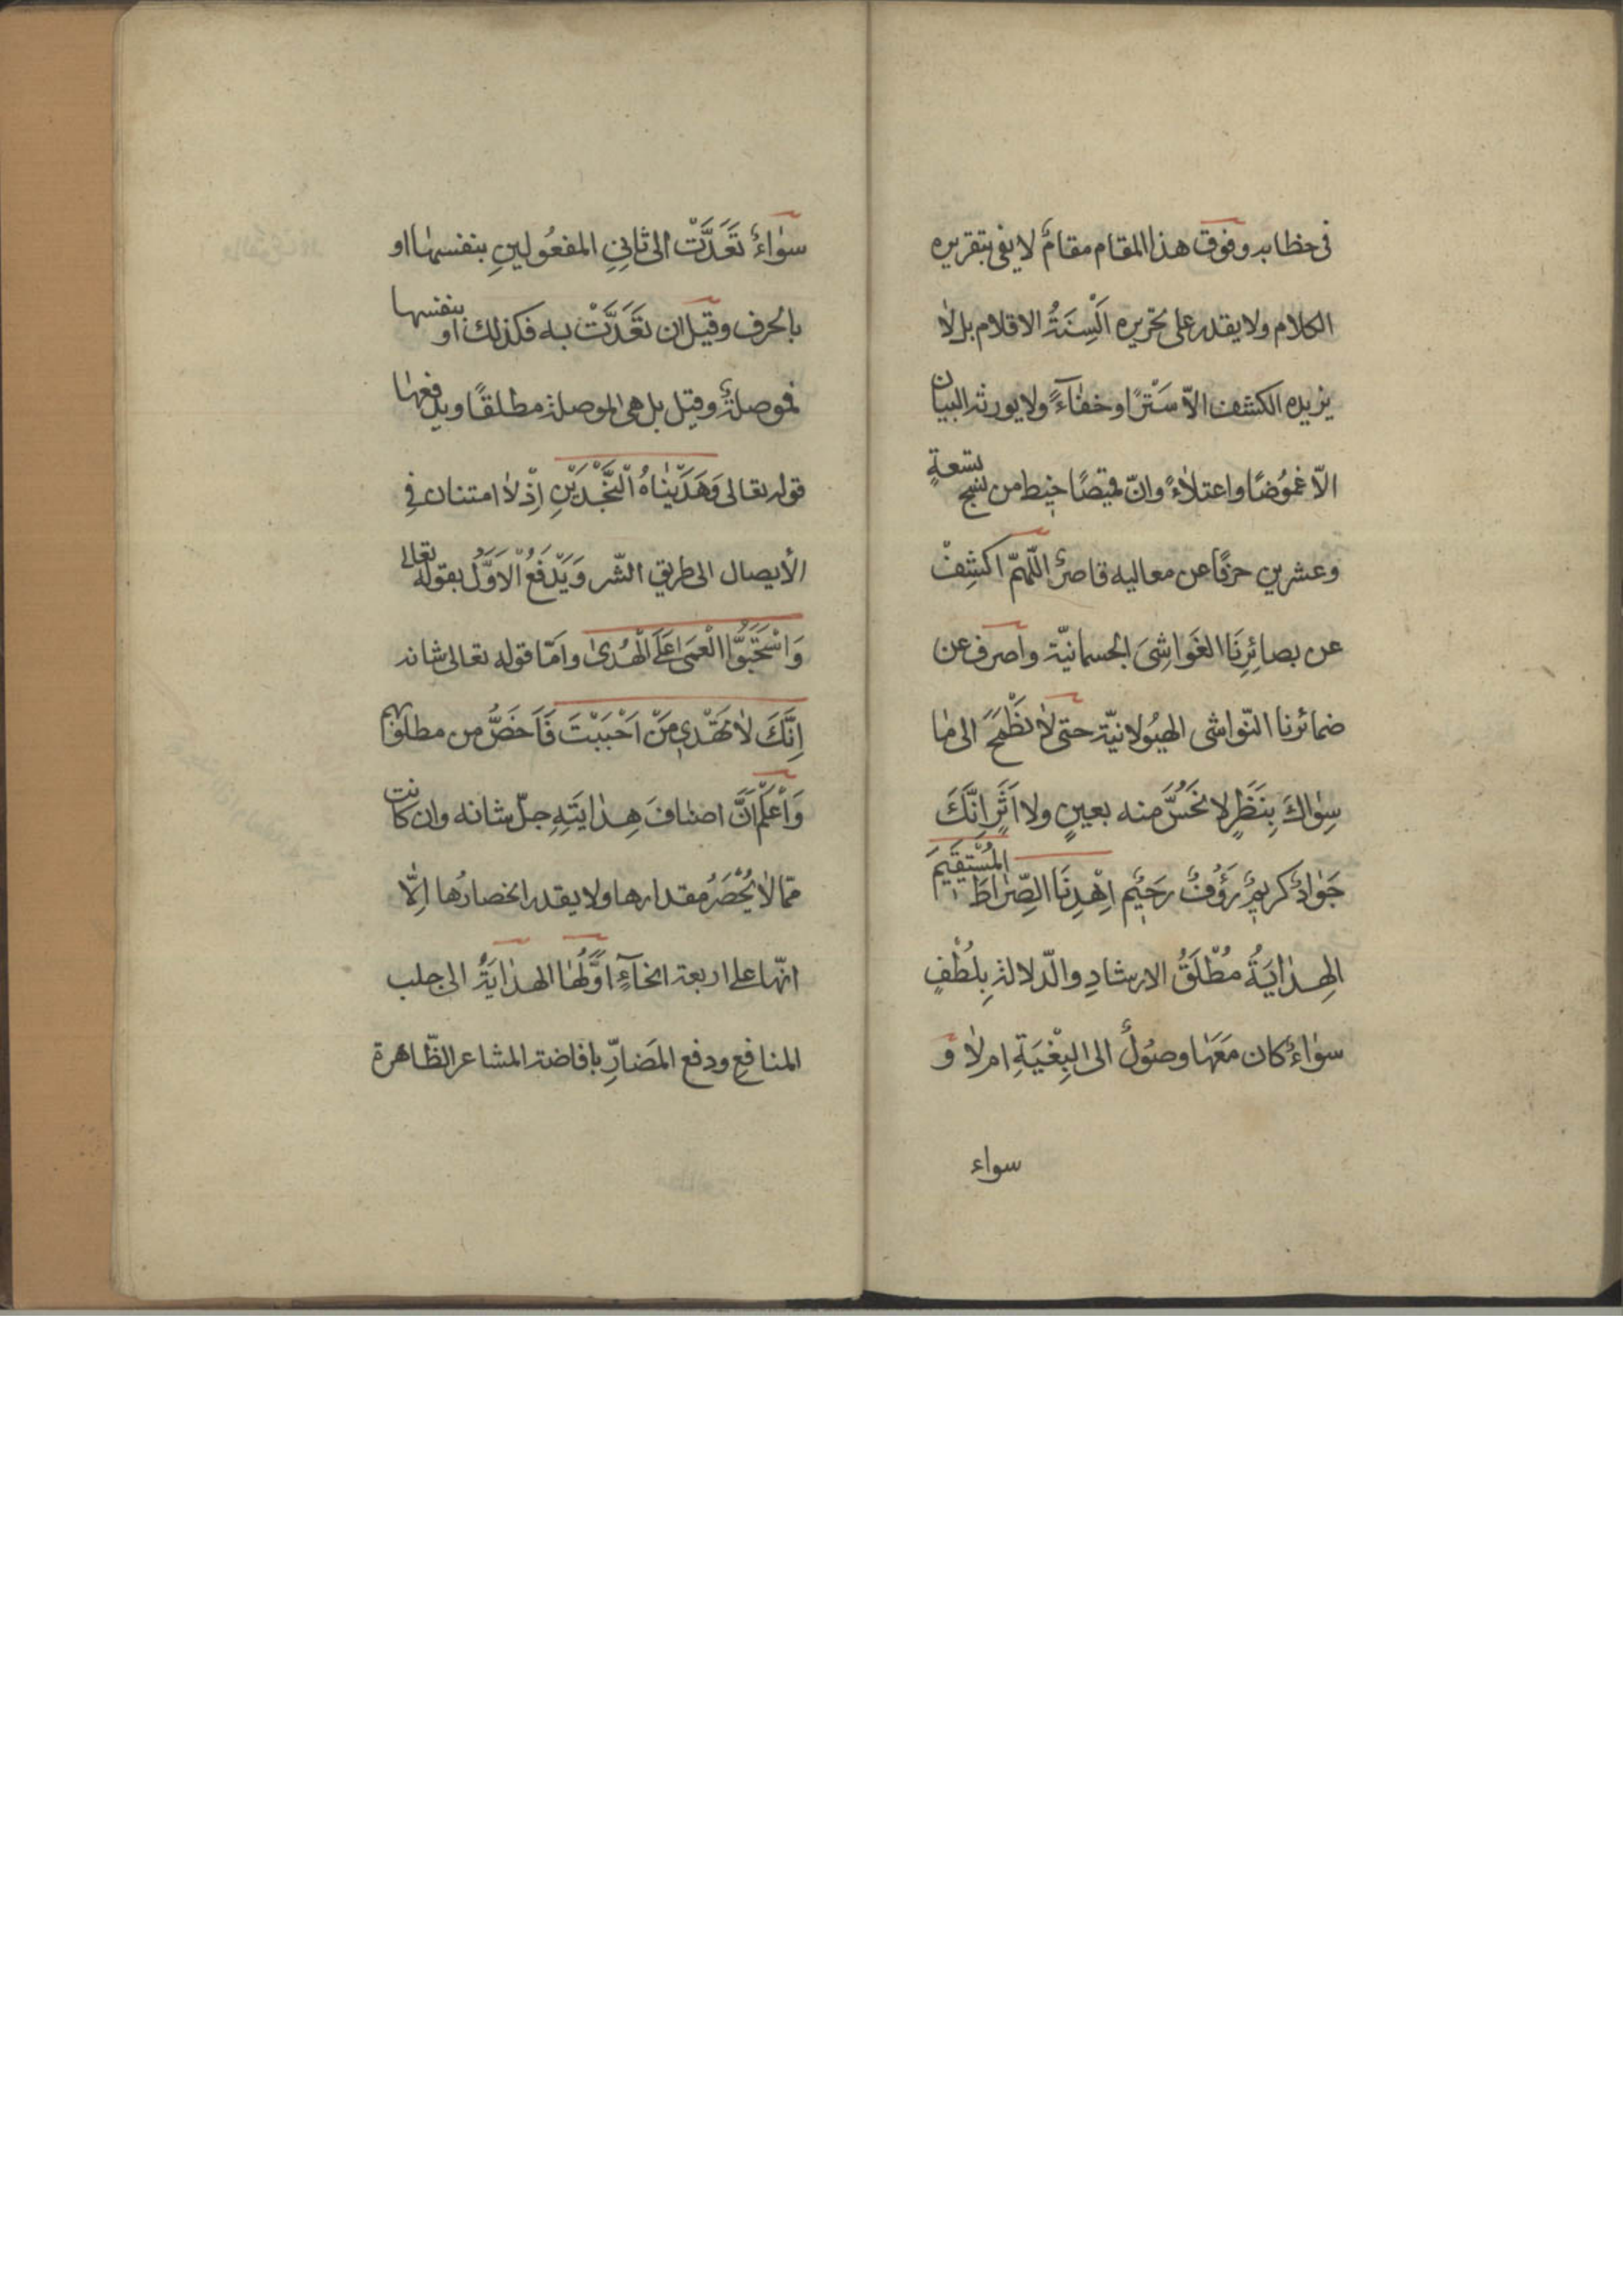 فى خطابه وفوق هذا المقام مقامٌ لا يفى بتقريره
الكلام ولا يقدر على تحريره اَلْسِنَةُ الاقلام بل لا
يزيده الكشف الاّ سَتْرًا وخفاءً ولا يورثه البيان
الاّ غمُوُضًا واعتلاءً وانّ قميصًا خيط من نسج تسعةٍ
وعشرين حرفًا عن معاليه قاصرٌ اللّهمّ اكشِفْ
عن بصائِرِنَا الغَواشِىَ الجسمانيّة واصرف عن
ضمائرنا النّواشى الهيُولانيّة حتى لا نَطْمَحَ الى ما
سِواكَ بِنَظَرٍ لا نَحُسَّ منه بعينٍ ولا اَثَرٍ اِنَّكَ
جَوادٌ كريمٌ رَؤُفٌ رَحيٌم اِهْدِنَا الصِّراطَ المُسْتَقيمَ
الهِدايَةُ مُطْلَقُ الارشادِ والدّلالةِ بِلُطْفٍ
سواءٌ كان مَعَها وصوُلٌ الى البِغْيَةِ ام لا وَ
سواء
سَواءٌ تَعَدَّتْ الى ثانِىِ المفعُولينِ بنفسها او
بالحرف وقيل ان تَعَدَّتْ به فكذلك او بنفسها
فموصلةٌ وقيل بل هى الموصلة مطلقًا ويدفعها
قوله تعالى وَهَدَيْناهُ النَّجْدَيْنِ اِذْ لا امتنان فى
الأيصال الى طريق الشّر وَيَدْفَعُ الْاَوَّلَ بقوله تعالى
وَاسْتَحَبُّوا الْعَمىٰ عَلَى الْهُدىٰ وامّا قوله تعالى شانه
اِنَّكَ لا تَهْدي مَنْ اَحْبَبْتَ فَاَخَصُّ من مطلقهم
وَاْعَلْم اَنَّ اصنافَ هِدايَتِهِ جلّ شانه وان كانت
ممّا لا يُحْصَرُ مقدارها ولا يقدر انحصارُها اِلّا
انّها على اربعة انحآءٍ اَوَّلُها الهدايَةُ الى جلب
المنافعِ ودفع المَضارِّ بافاضة المشاعر الظّاهرة